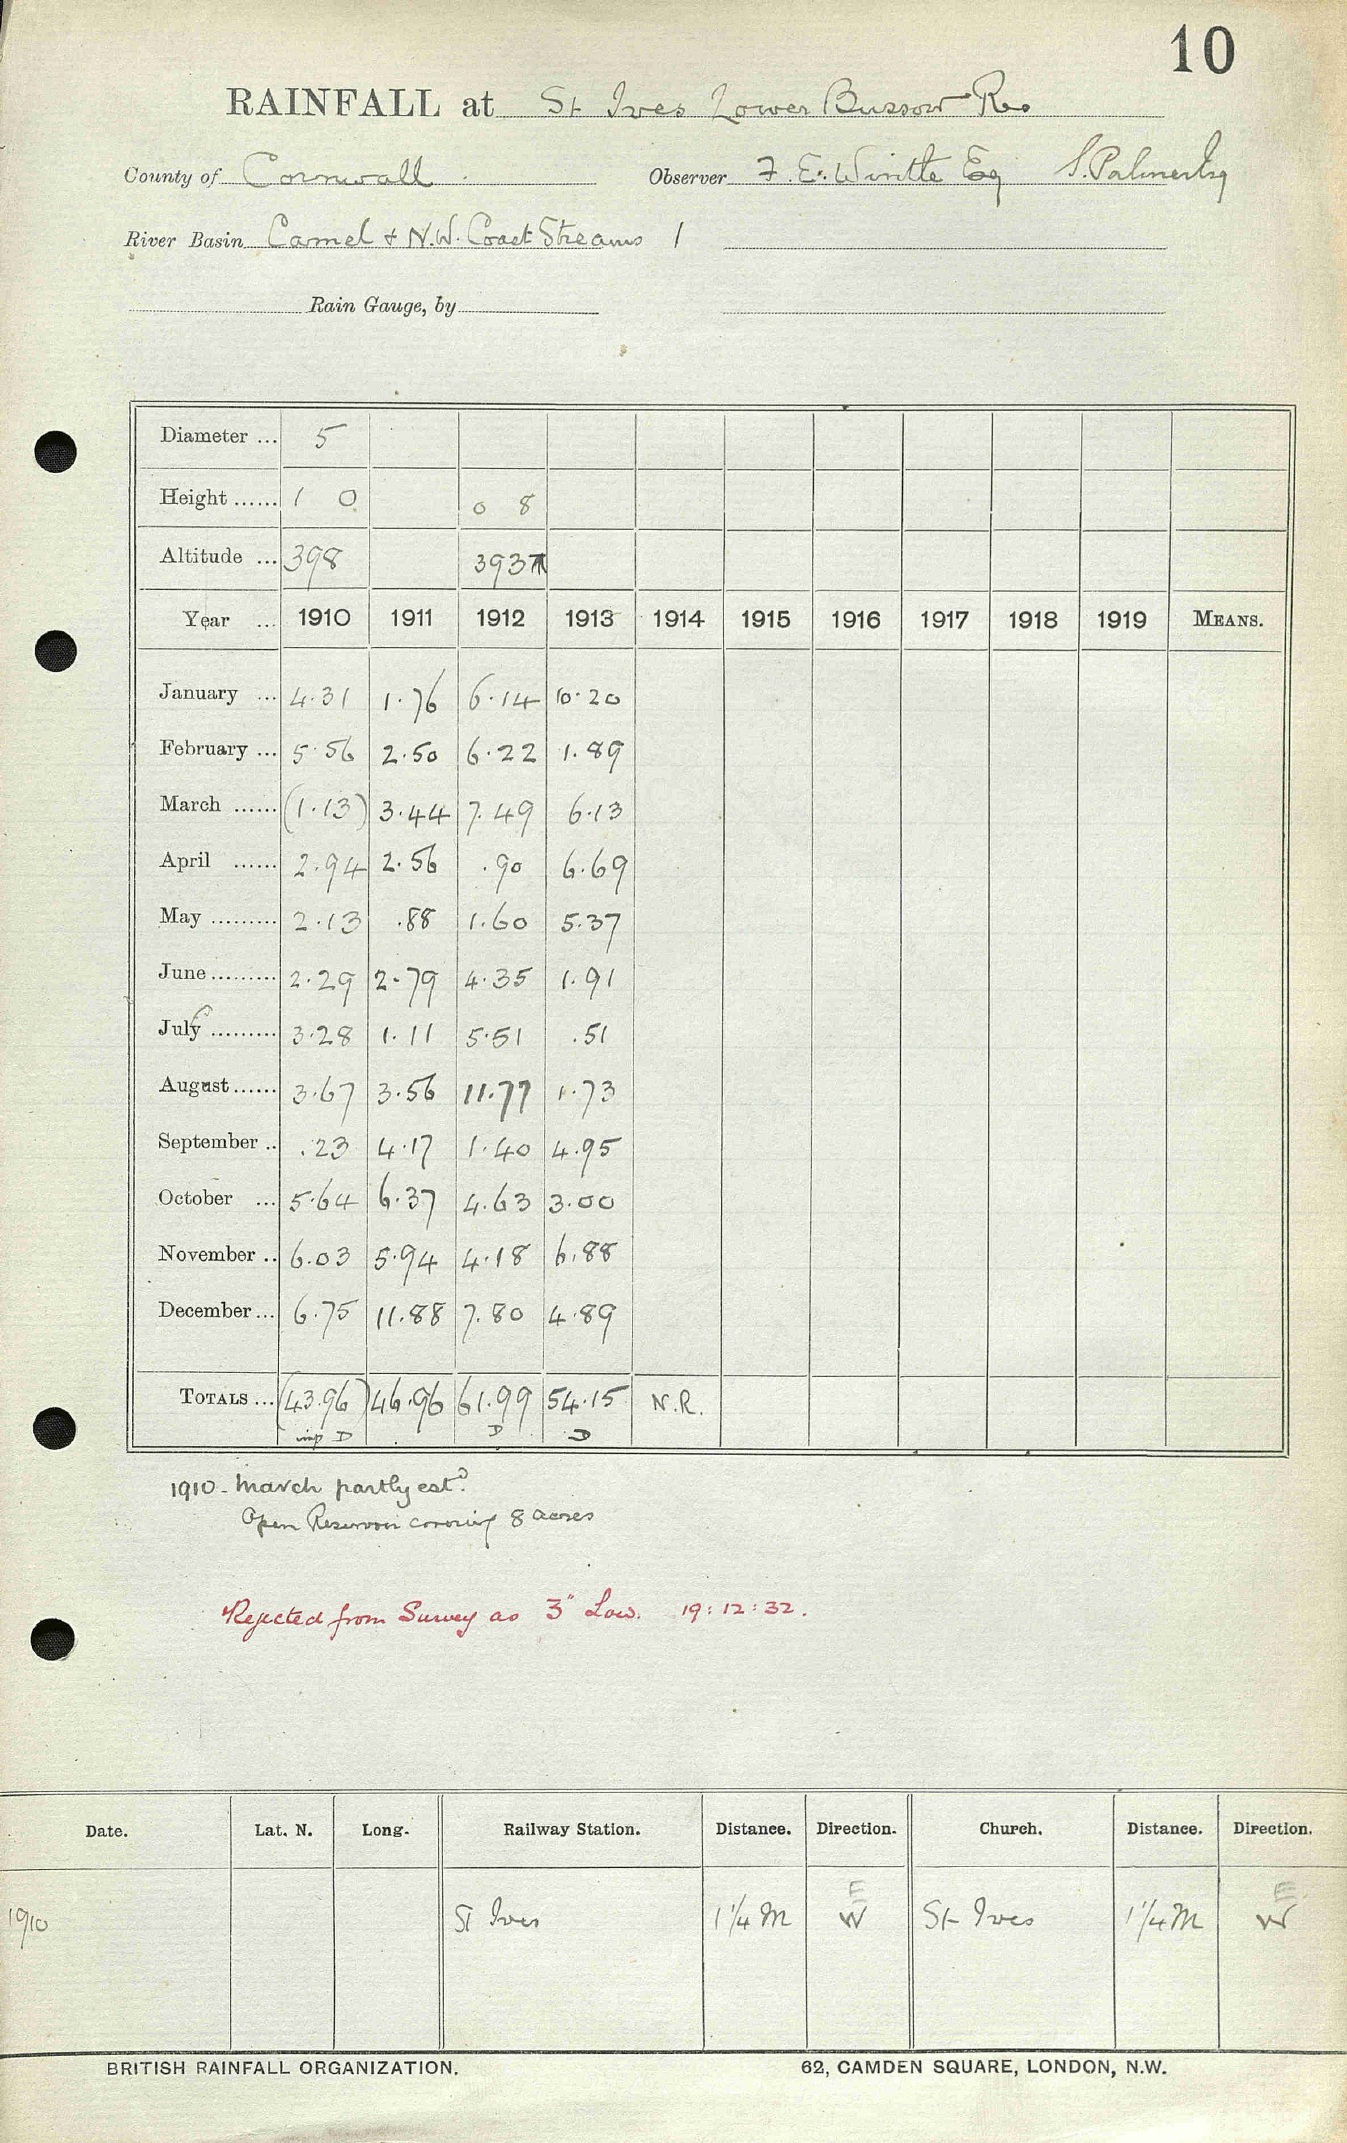 10
RAINFALL at St Ives Lower Bussow Res
County of Cornwall. Observer F. E. Wintle Esq S. Palmer Esq
River Basin Camel & N.W. Coast Streams 1
Rain Gauge, by
Diameter ... 5
Height ...... 1 0 0 8
Altitude ... 398 393
Year ... 1910 1911 1912 1913 1914 1915 1916 1917 1918 1919 MEANS.
January ... 4.31 1.76 6.14 10.20
February ... 5.56 2.50 6.22 1.89
March ...... (1.13) 3.44 7.49 6.13
April ...... 2.94 2.56 .90 6.69
May ......... 2.13 .88 1.60 5.37
June ......... 2.29 2.79 4.35 1.91
July ......... 3.28 1.11 5.51 .51
August ...... 3.67 3.56 11.77 1.73
September .. .23 4.17 1.40 4.95
October ... 5.64 6.37 4.63 3.00
November .. 6.03 5.94 4.18 6.88
December ... 6.75 11.88 7.80 4.89
TOTALS ... (43.96) 46.96 61.99 54.15 N.R.
imp D D D
1910 - March partly estd.
Open Reservoir covering 8 acres
Rejected from Survey as 3" Low. 19:12:32.
Date. Lat. N. Long. Railway Station. Distance. Direction. Church. Distance. Direction.
E E
1910 St Ives 1¼ M W St Ives 1¼ M W
BRITISH RAINFALL ORGANIZATION. 62, CAMDEN SQUARE, LONDON, N.W.